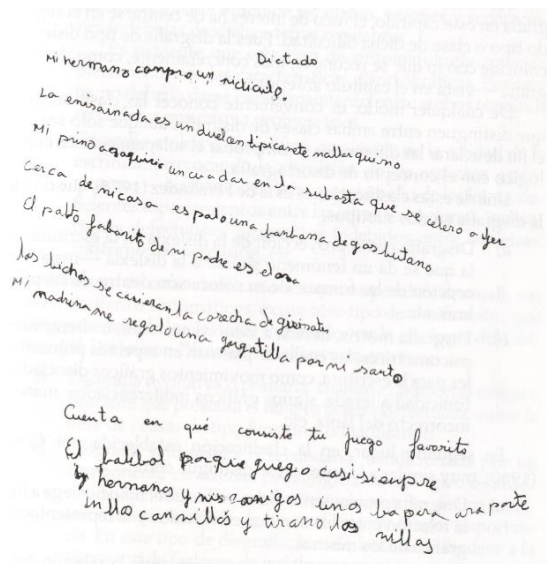 Dictado
Mi hermano compro un ridiculo.
La ensainada es un dulcen tipicanete mallorquino
Mi primo acaquirio un cuadro en la subasta que se celero a yer
Cerca de mi casa espalo una bonbana de gas butano
El patto faborito de mi padre es el
los bichos se comieran la cosecha de
Mi madrina me regalo una gargatilla por mi santo
Cuenta en qué consiste tu juego favorito
El balibal porque guego casi siempre
hermano y mis amigos unos ba para ara porte
inllo carnillos y tirano los nillas